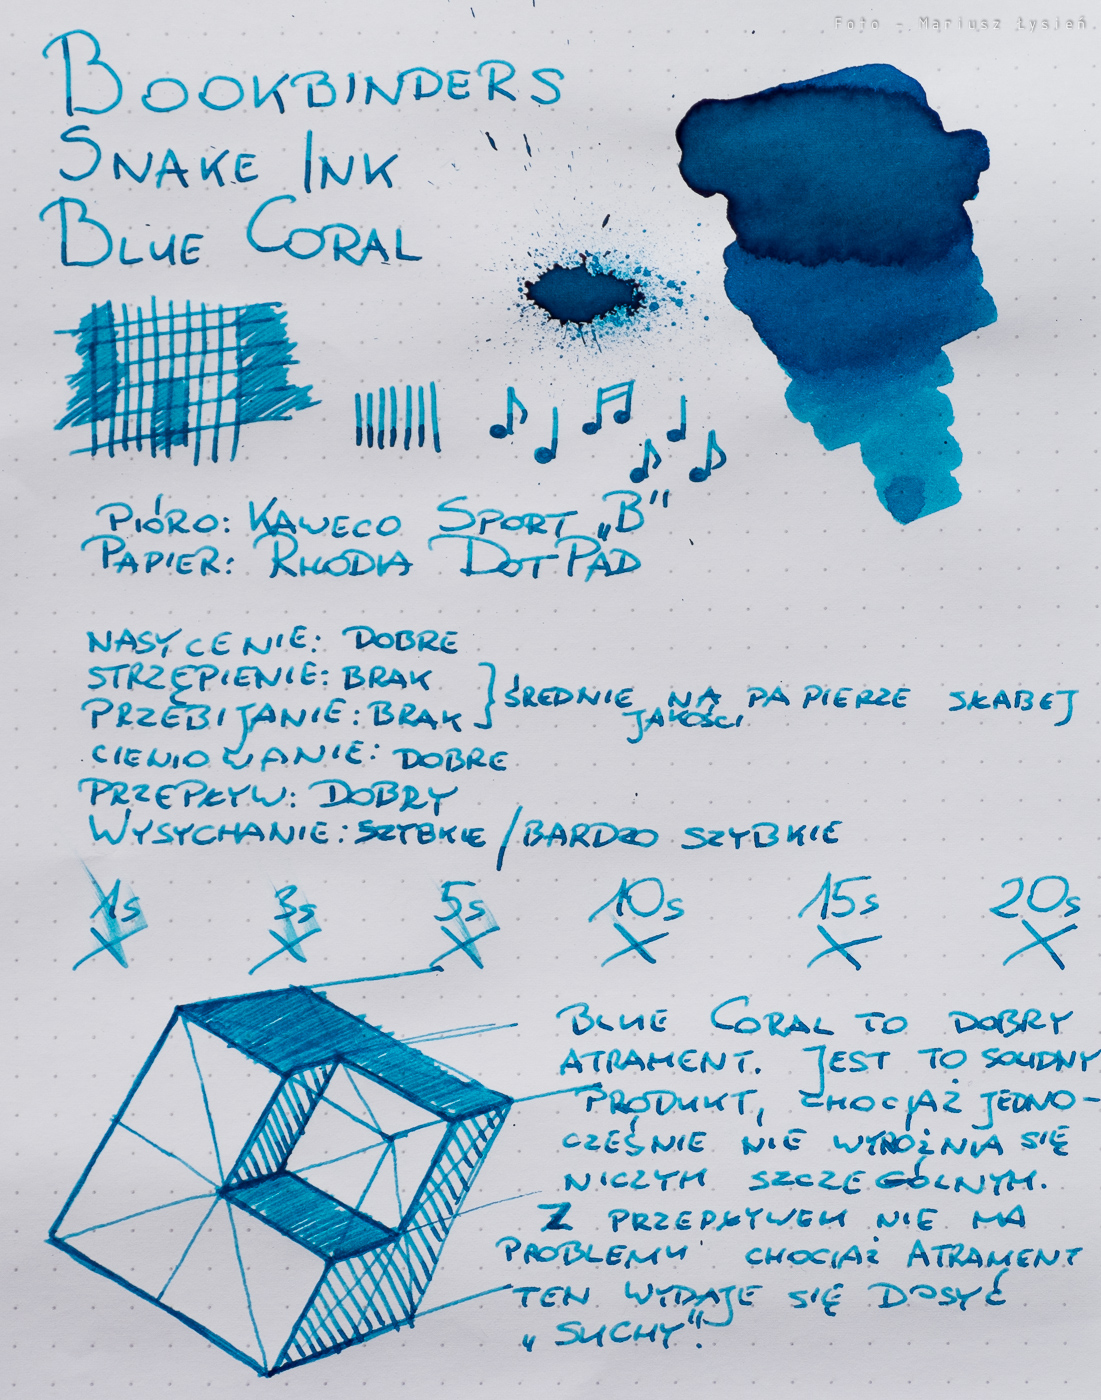 Foto - Mariusz Łysień
BOOKBINDERS
SNAKE INK
BLUE CORAL
PIÓRO: KAWECO SPORT „B"
PAPIER: RHODIA DOTPAD
NASYCENIE: DOBRE
STRZĘPIENIE: BRAK
PRZEBIJANIE: BRAK } ŚREDNIE NA PAPIERZE SŁABEJ
JAKOŚCI
CIENIOWANIE: DOBRE
PRZEPŁYW: DOBRY
WYSYCHANIE: SZYBKIE / BARDZO SZYBKIE
1s 3s 5s 10s 15s 20s
BLUE CORAL TO DOBRY
ATRAMENT. JEST TO SOLIDNY
PRODUKT, CHOCIAŻ JEDNO-
CZEŚNIE NIE WYRÓŻNIA SIĘ
NICZYM SZCZEGÓLNYM.
Z PRZEPŁYWEM NIE MA
PROBLEMU CHOCIAŻ ATRAMENT
TEN WYDAJE SIĘ DOSYĆ
„SUCHY".